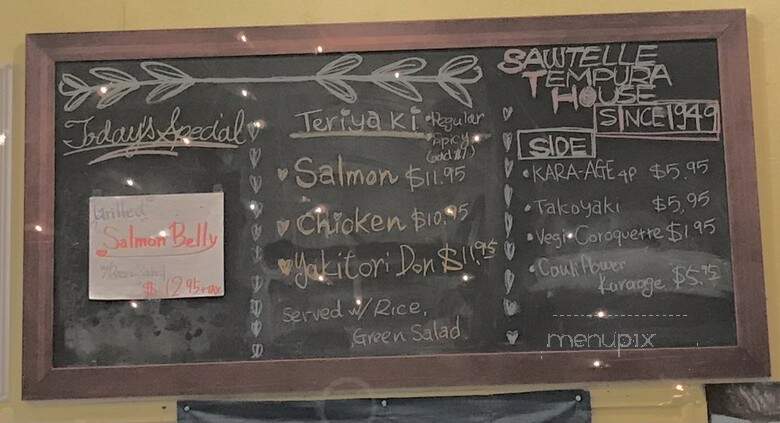 Today's Special
Grilled
Salmon Belly
$12.95+tax
Teriyaki
• Regular
• Spicy
(add $1)
Salmon $11.95
Chicken $10.95
Yakitori Don $11.95
Served w/ Rice,
Green Salad
SAWTELLE
TEMPURA
HOUSE
SINCE 1949
SIDE
• KARA-AGE 4P $5.95
• Takoyaki $5.95
• Vegi-Coroquette $1.95
• Cauliflower
Karaage $5.95
menupix